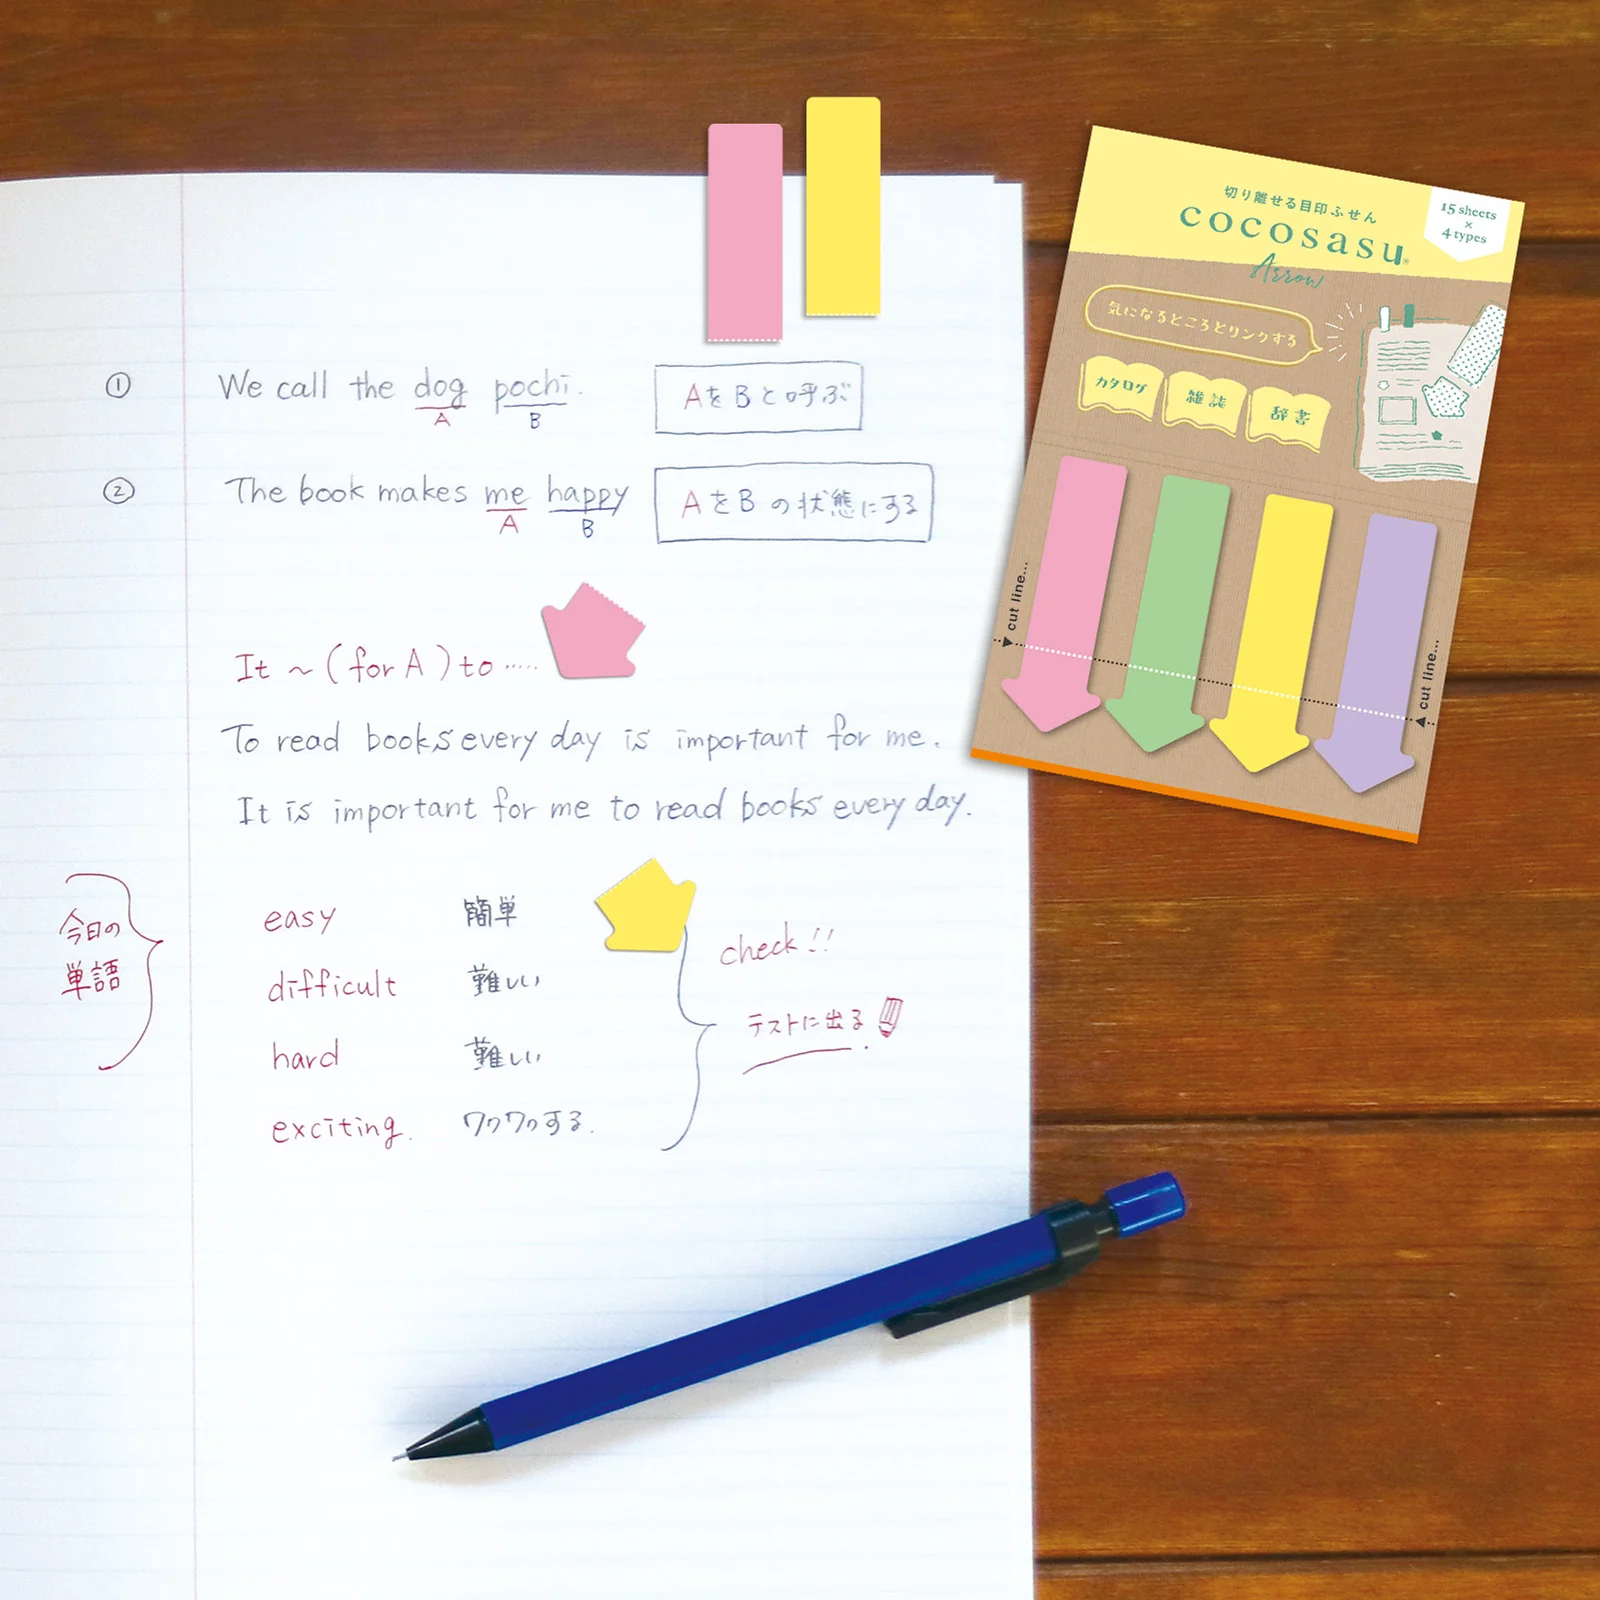 ① We call the dog pochi. AをBと呼ぶ
A B
② The book makes me happy AをBの状態にする
A B
It ~ (for A) to ‥‥‥
To read books every day is important for me.
It is important for me to read books every day.
今日の
単語
easy 簡単
difficult 難しい
hard 難しい
exciting. ワクワクする.
check!!
テストに出る
切り離せる目印ふせん
cocosasu®
Arrow
15 sheets
×
4 types
気になるところとリンクする
カタログ
雑誌
辞書
cut line...
cut line...